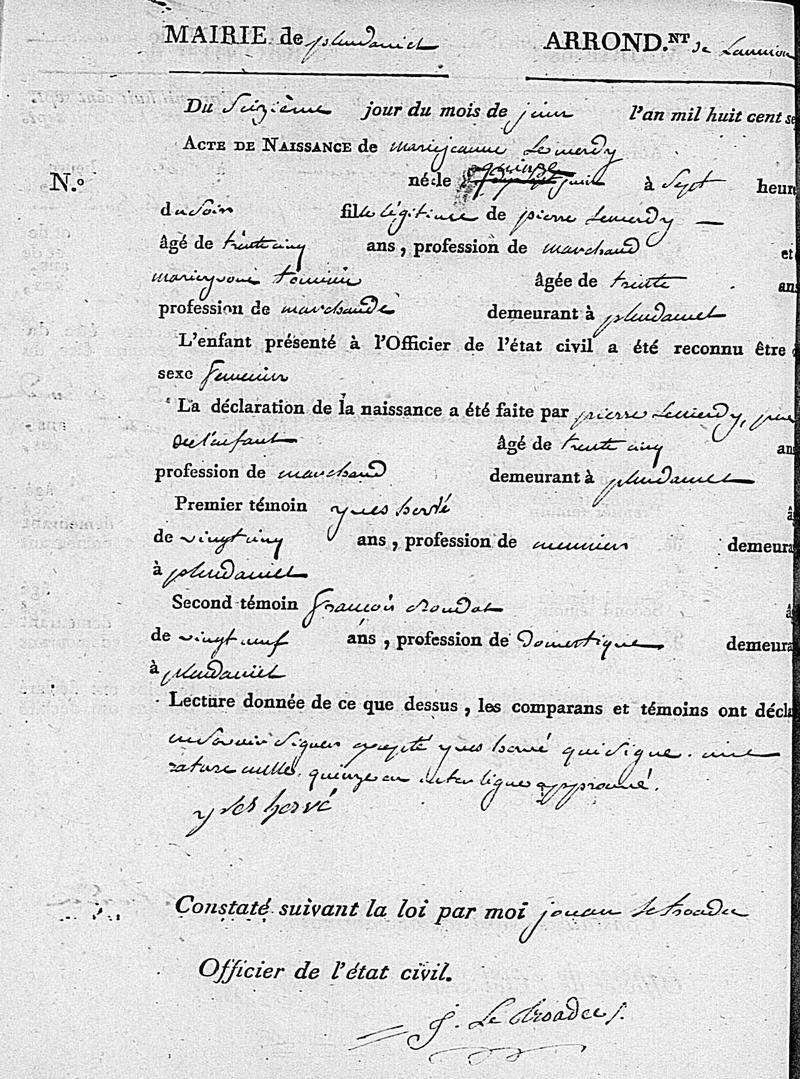 MAIRIE de pleudaniel ARROND.NT de Lannion
Du Seizième jour du mois de juin l'an mil huit cent se
ACTE DE NAISSANCE de marie jeanne Lemerdy
quinze
N.o née le juin à Sept heur
du soir fille légitime de pierre Lemerdy —
âgé de trente cinq ans, profession de marchand et
marie yvonne âgée de trente an
profession de marchande demeurant à pleudaniel
L'enfant présenté à l'Officier de l'état civil a été reconnu être
sexe femenin
La déclaration de la naissance a été faite par pierre Lemerdy, pere
de l'enfant âgé de trente cinq an
profession de marchand demeurant à pleudaniel
Premier témoin yves hervé â
de vingt cinq ans, profession de meunier demeura
à pleudaniel
Second témoin françois â
de vingt neuf ans, profession de Domestique demeura
à pleudaniel
Lecture donnée de ce que dessus, les comparans et témoins ont décla
ne Savoir Signer excepté yves hervé qui Signe. une
rature nulle. quinze en interligne approuvé.
yves hervé
Constaté suivant la loi par moi jouan le troadec
Officier de l'état civil.
J. Le troadec